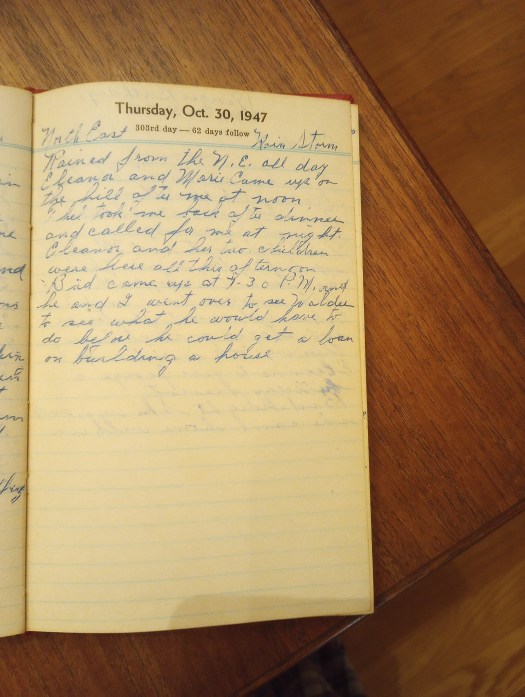 Thursday, Oct. 30, 1947
303rd day — 62 days follow
North East Rain Storm
Rained from the N.E. all day
Eleanor and Marie Came up on
the hill after me at noon
took me back after dinner
and called for me at night.
Eleanor and her two children
were here all this afternoon
Bird came up at 7.30 P.M. and
he and I went over to see
to see what he would have to
do before he could get a loan
on building a house